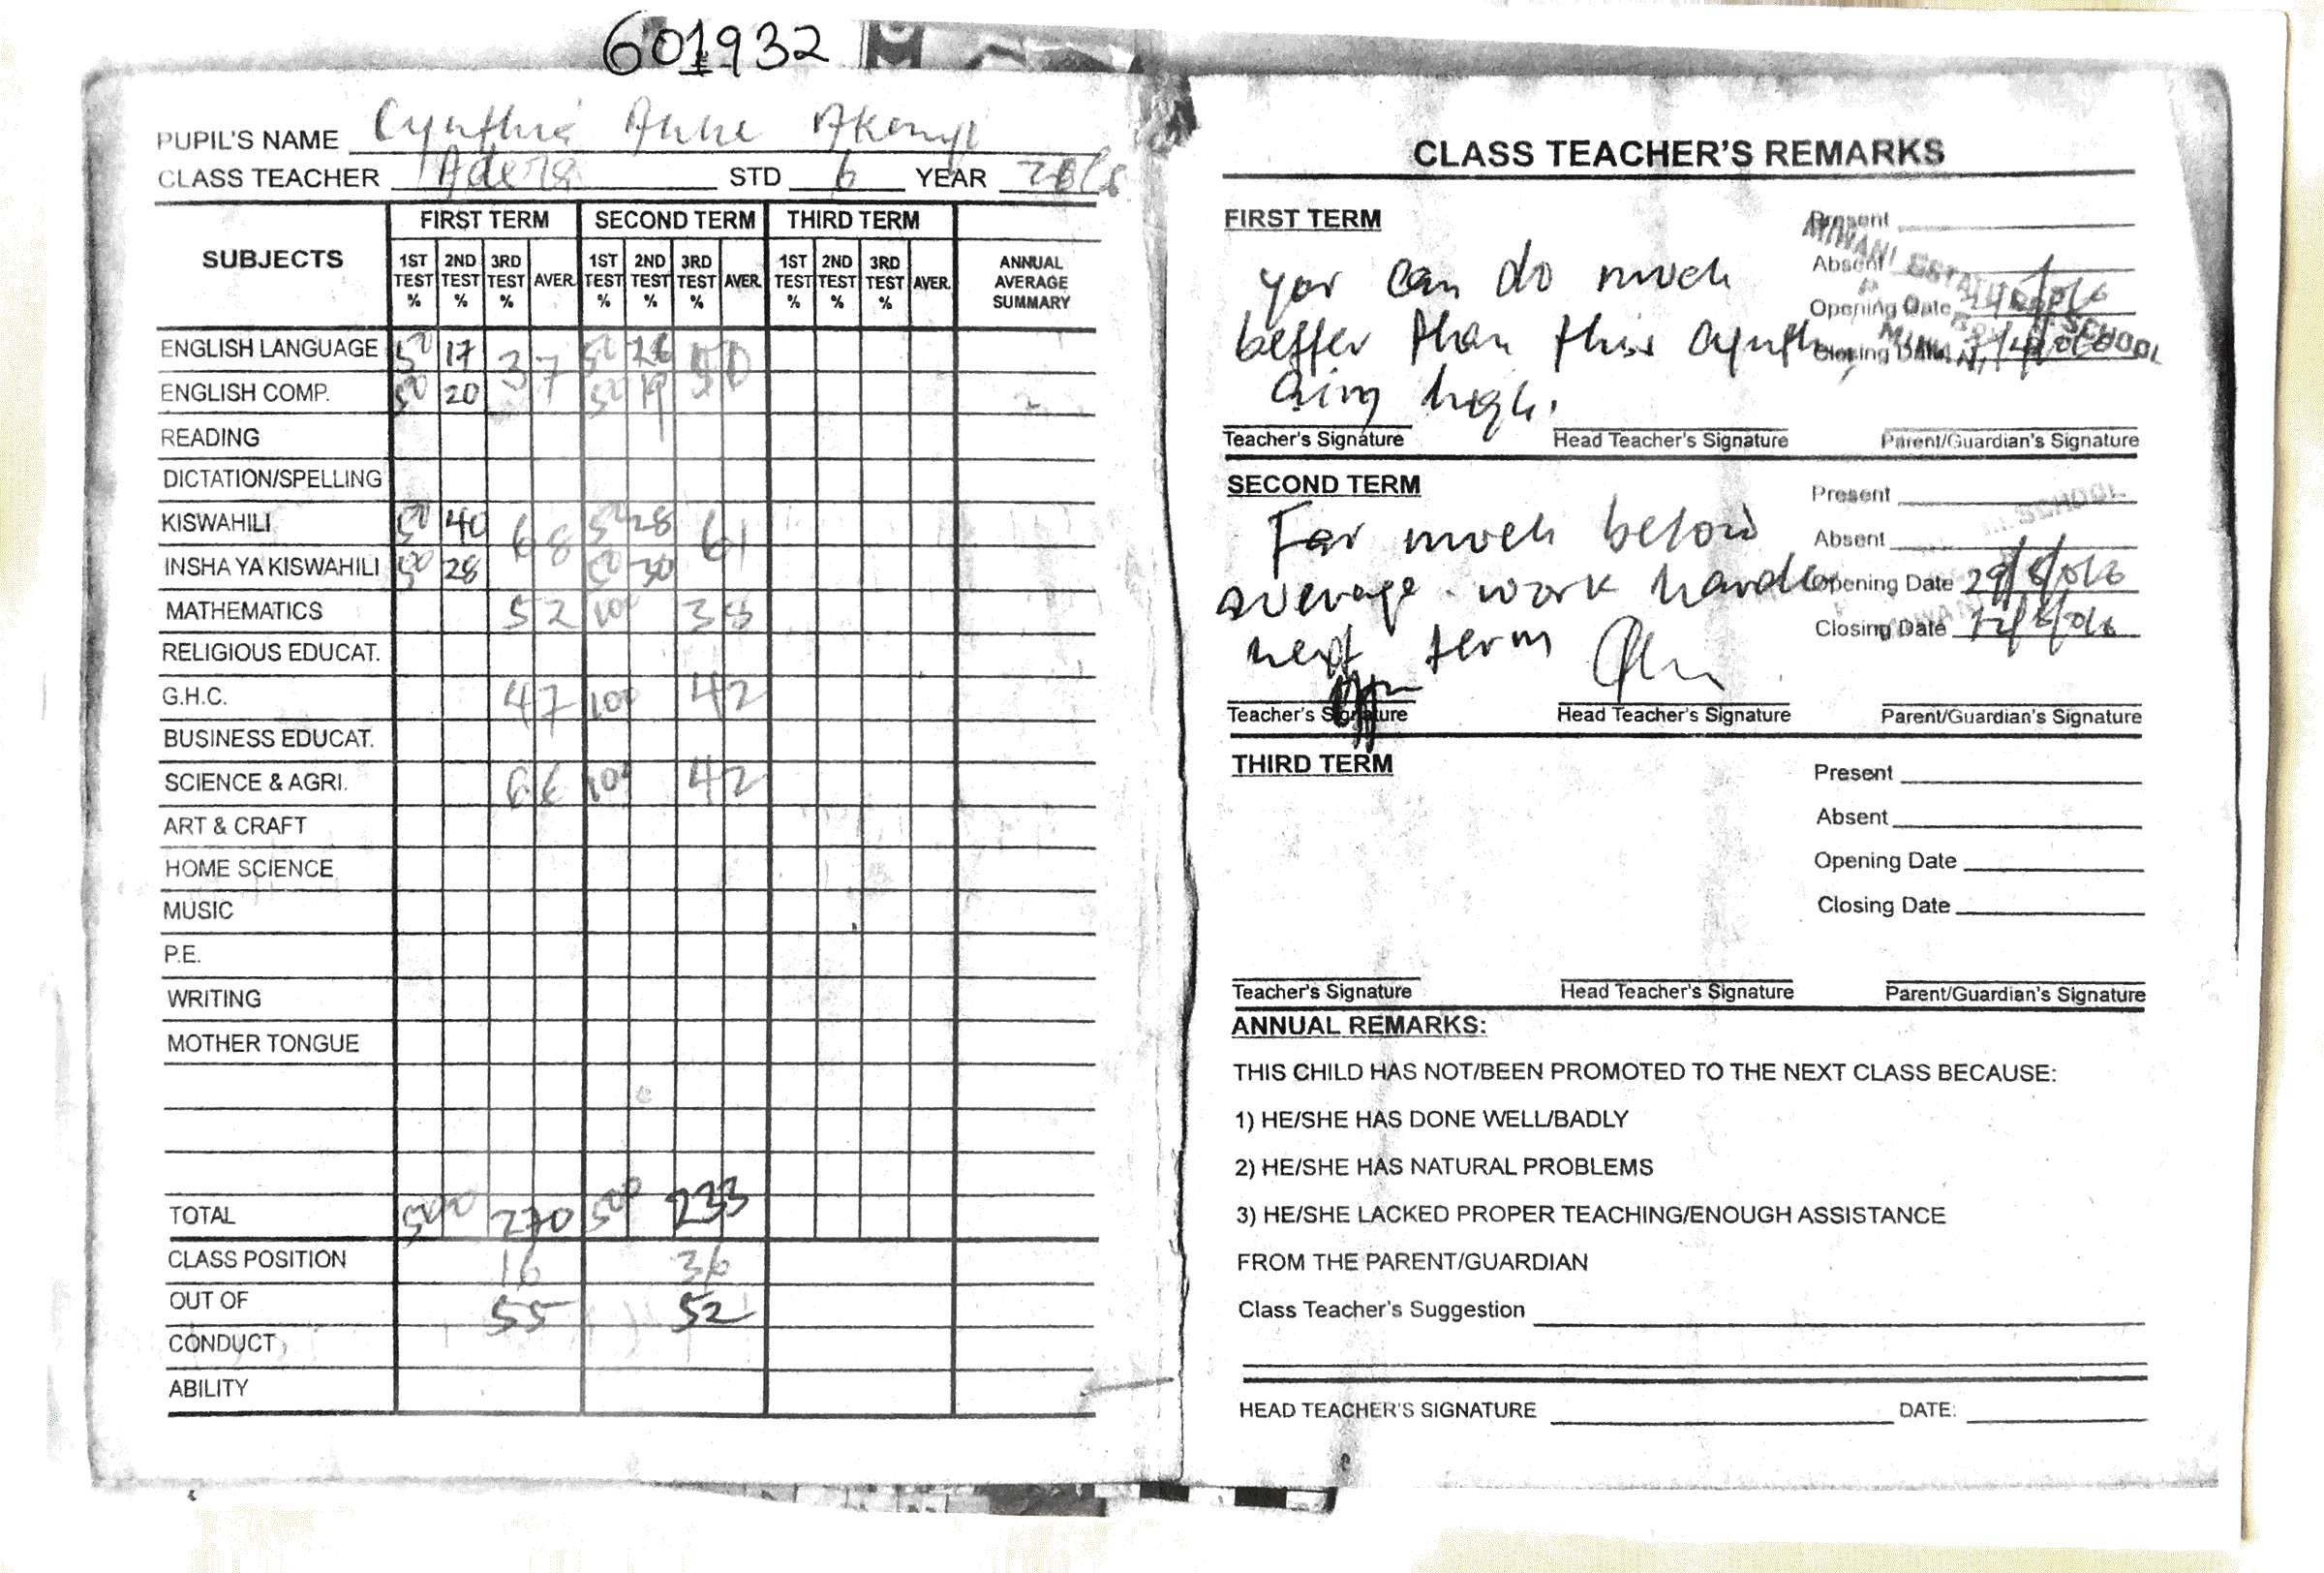 601932
PUPIL'S NAME Cynthia Anne Akenyi
CLASS TEACHER Adera STD 6 YEAR 2016
SUBJECTS FIRST TERM SECOND TERM THIRD TERM
1ST TEST % 2ND TEST % 3RD TEST % AVER. 1ST TEST % 2ND TEST % 3RD TEST % AVER. 1ST TEST % 2ND TEST % 3RD TEST % AVER. ANNUAL AVERAGE SUMMARY
ENGLISH LANGUAGE 50 17 37 50 50
ENGLISH COMP. 50 20 50 19
READING
DICTATION/SPELLING
KISWAHILI 50 40 68 50 28 61
INSHA YA KISWAHILI 50 28 50 30
MATHEMATICS 52 100 38
RELIGIOUS EDUCAT.
G.H.C. 47 100 42
BUSINESS EDUCAT.
SCIENCE & AGRI. 66 100 42
ART & CRAFT
HOME SCIENCE
MUSIC
P.E.
WRITING
MOTHER TONGUE
TOTAL 500 270 500 233
CLASS POSITION 16 36
OUT OF 55 52
CONDUCT
ABILITY
CLASS TEACHER'S REMARKS
FIRST TERM
Present
Absent
Opening Date
Closing Date
you can do much
better than this
aim high.
Teacher's Signature Head Teacher's Signature Parent/Guardian's Signature
SECOND TERM
Present
Absent
Opening Date 29/5/016
Closing Date
Far much below
average. work harder
next term
Teacher's Signature Head Teacher's Signature Parent/Guardian's Signature
THIRD TERM
Present
Absent
Opening Date
Closing Date
Teacher's Signature Head Teacher's Signature Parent/Guardian's Signature
ANNUAL REMARKS:
THIS CHILD HAS NOT/BEEN PROMOTED TO THE NEXT CLASS BECAUSE:
1) HE/SHE HAS DONE WELL/BADLY
2) HE/SHE HAS NATURAL PROBLEMS
3) HE/SHE LACKED PROPER TEACHING/ENOUGH ASSISTANCE
FROM THE PARENT/GUARDIAN
Class Teacher's Suggestion
HEAD TEACHER'S SIGNATURE DATE: